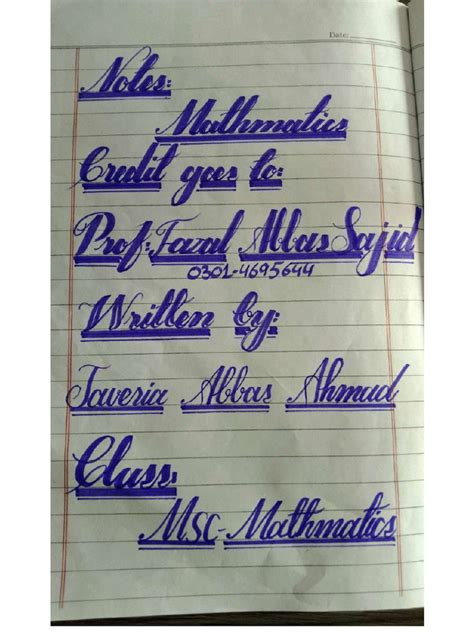 Date:
Notes:
Mathmatics
Credit goes to:
Prof: Fazal Abbas Sajid
0301-4695644
Written by:
Javeria Abbas Ahmad
Class:
MSC-Mathmatics